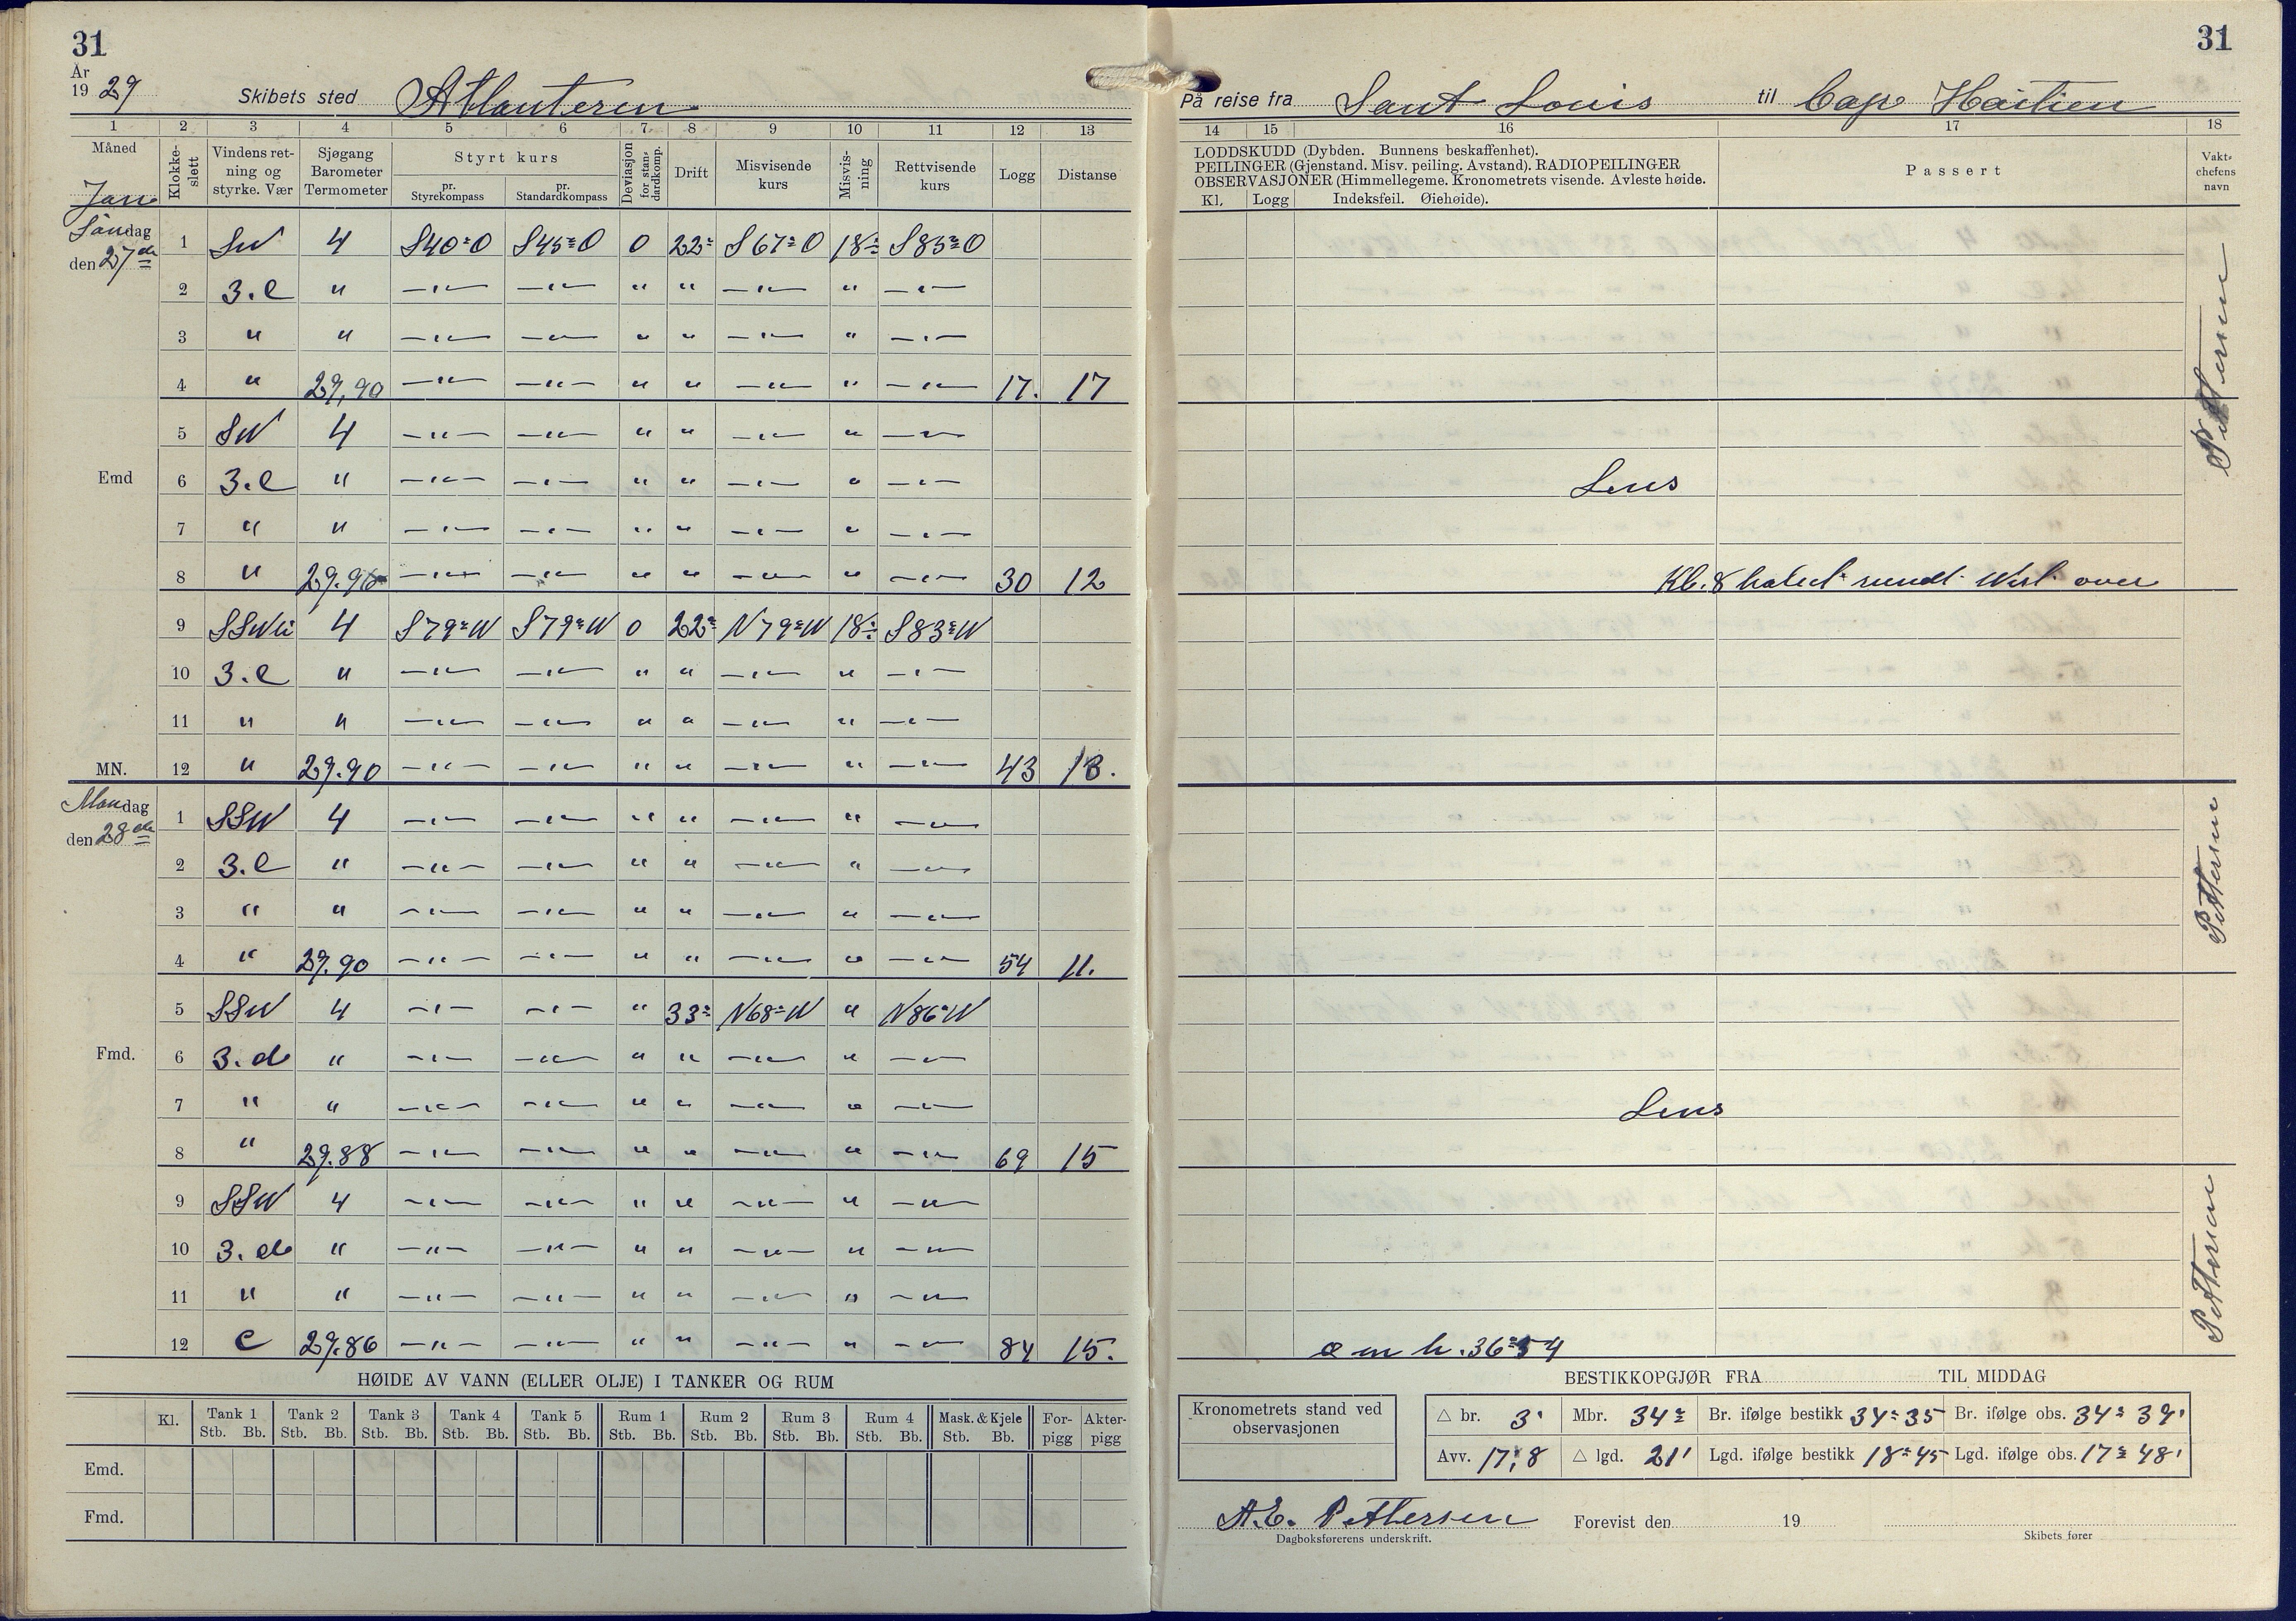 31
År
19 29 Skibets sted Atlanteren
1 2 3 4 5 6 7 8 9 10 11 12 13
Måned
Jan
Klokke-
slett
Vindens ret-
ning og
styrke. Vær
Sjøgang
Barometer
Termometer
Styrt kurs
pr.
Styrekompass
pr.
Standardkompass
Deviasjon
for stan-
dardkomp.
Drift
Misvisende
kurs
Misvis-
ning
Rettvisende
kurs
Logg
Distanse
Søndag
den 27de
1 SW 4 S40°O S45°O 0 22° S67°O 18° S85°O
2 3.c " —"— —"— " " —"— " —"—
3 " " —"— —"— " " —"— " —"—
4 " 29,90 —"— —"— " " —"— " —"— 17. 17
5 SW 4 —"— —"— " " —"— " —"—
Emd 6 3.c " —"— —"— " " —"— " —"—
7 " " —"— —"— " " —"— " —"—
8 " 29.90 —"— —"— " " —"— " —"— 30 12
9 4 S79°W S79°W 0 22° N79°W 18° S83°W
10 3.c " —"— —"— " " —"— " —"—
11 " " —"— —"— " " —"— " —"—
MN. 12 " 29.90 —"— —"— " " —"— " —"— 43 13.
Mandag
den 28de
1 SSW 4 —"— —"— " " —"— " —"—
2 3.c " —"— —"— " " —"— " —"—
3 " " —"— —"— " " —"— " —"—
4 " 29.90 —"— —"— " " —"— " —"— 54 11.
5 SSW 4 —"— —"— " 33° N68°W " N86°W
Fmd. 6 3. " —"— —"— " " —"— " —"—
7 " " —"— —"— " " —"— " —"—
8 " 29.88 —"— —"— " " —"— " —"— 69 15
9 SSW 4 —"— —"— " " —"— " —"—
10 3. " —"— —"— " " —"— " —"—
11 " " —"— —"— " " —"— " —"—
12 c 29.86 —"— —"— " " —"— " —"— 84 15.
HØIDE AV VANN (ELLER OLJE) I TANKER OG RUM
Kl. Tank 1 Tank 2 Tank 3 Tank 4 Tank 5 Rum 1 Rum 2 Rum 3 Rum 4 Mask. & Kjele For- Akter-
Stb. Bb. Stb. Bb. Stb. Bb. Stb. Bb. Stb. Bb. Stb. Bb. Stb. Bb. Stb. Bb. Stb. Bb. Stb. Bb. pigg pigg
Emd.
Fmd.
31
På reise fra Sant Louis til Cap Haitien
14 15 16 17 18
LODDSKUDD (Dybden. Bunnens beskaffenhet).
PEILINGER (Gjenstand. Misv. peiling. Avstand). RADIOPEILINGER
OBSERVASJONER (Himmellegeme. Kronometrets visende. Avleste høide.
Kl. Logg Indeksfeil. Øiehøide).
Passert
Vakt-
chefens
navn
Lens
Kl. 8 halet rundt West over
Pettersen
Lens
Pettersen
m h. 36°54
BESTIKKOPGJØR FRA TIL MIDDAG
Kronometrets stand ved
observasjonen
△ br. 3' Mbr. 34° Br. ifølge bestikk 34°35 Br. ifølge obs. 34° 39'
Avv. 17,8 △ lgd. 21' Lgd. ifølge bestikk 18°45 Lgd. ifølge obs. 17° 48'
A.E. Pettersen Forevist den 19
Dagboksførerens underskrift. Skibets fører